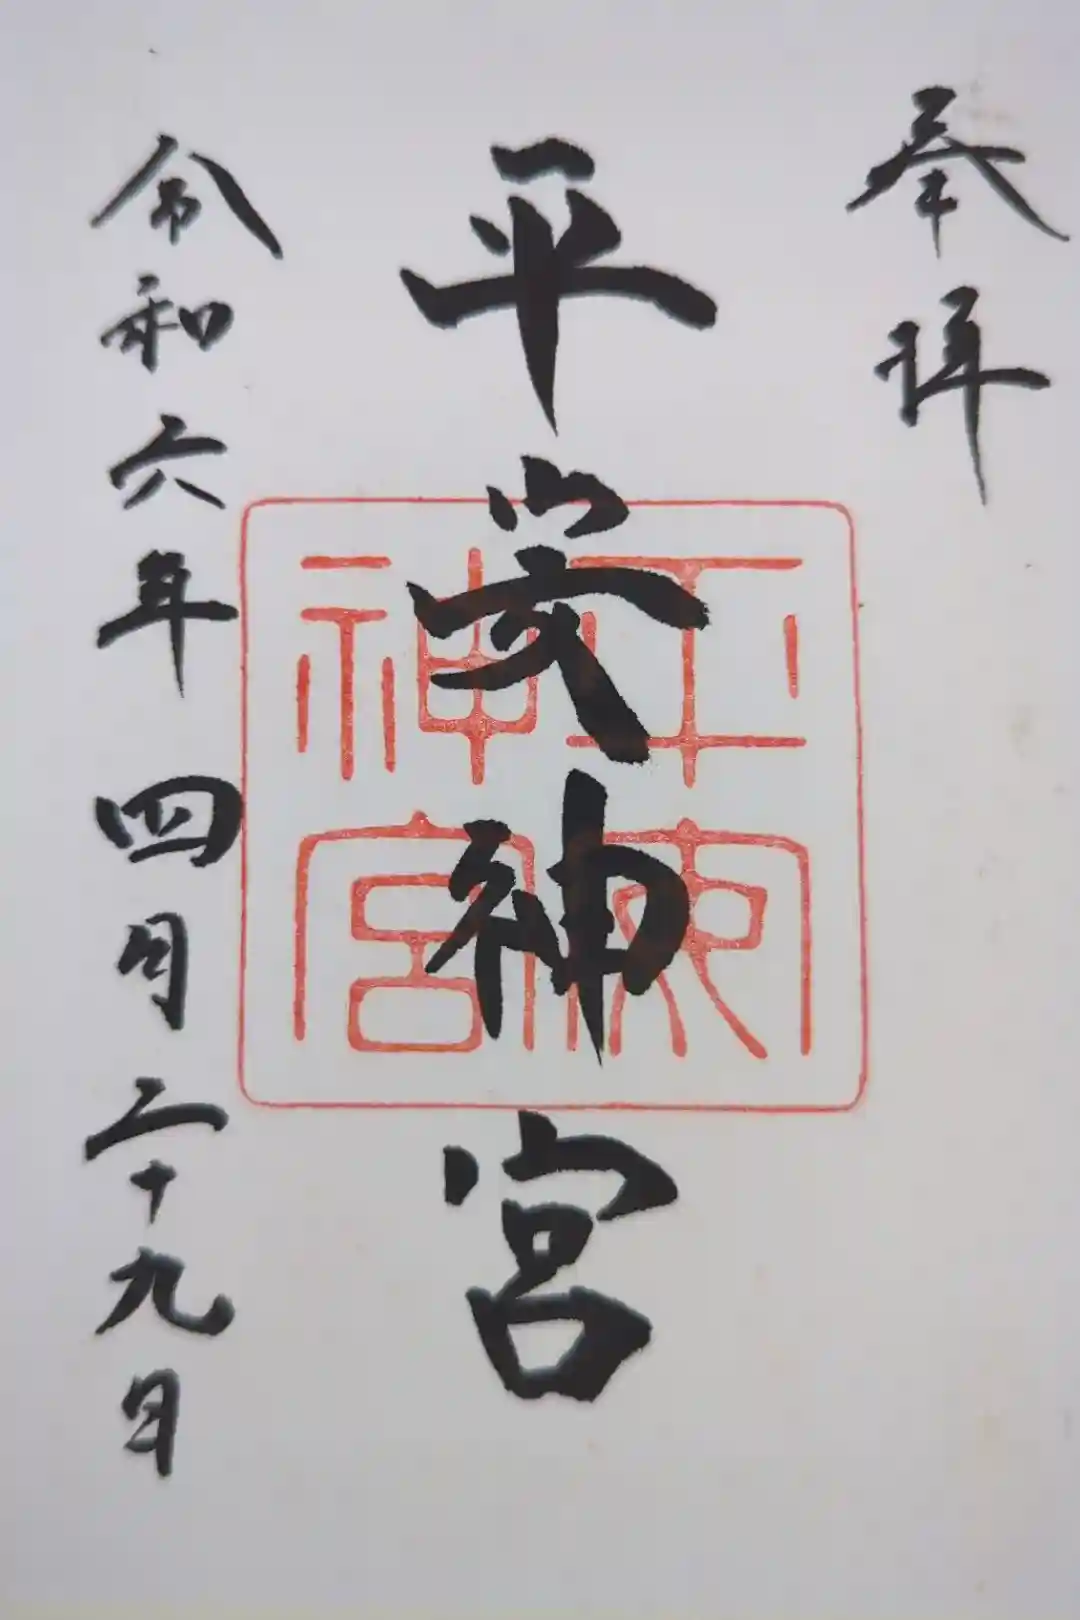 奉拝
平安神宮
平安神宮
令和六年四月二十九日